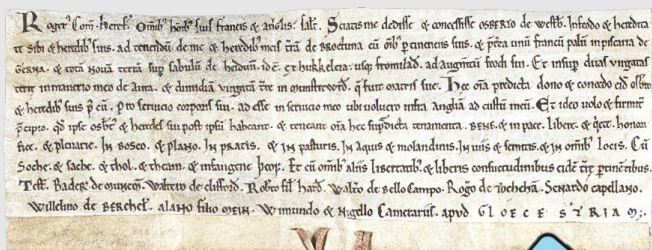 Roger⁹ Com̄. Heref. Om̄ib⁹ hom̄ib⁹ suis francis et anglis. salt̄. Sciatis me dedisse et concessisse OSBERTO de Westb̄. In feodo et heredita
te sibi et heredib⁹ suis. ad tenendū de me et heredib⁹ meis t̄rā de brocton̄a cū om̄ib⁹ ꝑtinenciis suis. et p̄terea unū francū palū in piscaria de
Gerna. et totā nouā terrā sup̄ sabulū de heidun. id ē. ex hukkeleia. usq; fromilad. ad augm̄tū feodi sui. Et insup̄ duas uirgatas
terre in manerio meo de Aura. et dimidiā uirgatā t̄re in munstreword̄. q̄ fuit matris sue. Hec om̄ia predicta dono et concedo eid̄ osb̄to
et heredib⁹ suis p̄ cū. Pro seruicio corporis sui. ad esse in seruicio meo ubi uoluero infra Angliā ad custū meū. Et ideo uolo et firmit̄
p̄cipio. qd̄ ipse osb̄t⁹ et heredes sui post ipsū habeant. et teneant om̄ia hec sup̄dicta tenamenta. BENE. et in pace. libere. et q̄ete. honori
fice. et plenarie. IN BOSCO. et PLANO. IN PRATIS. et IN pasturis. IN Aquis et molandinis. IN uiis et semitis. et IN om̄ib⁹ locis. Cū
Soche. et sache. et thol. et theam. et infangene þeof. Et cū om̄ib⁹ aliis libertatib⁹. et liberis consuetudinibus eidē t̄re ꝑtinētibus.
Test̄. Badeř de munem̄. Waltero de clifford. Rob̄to fil̄ Hard̄. Walt̄o de Bello Campo. Roḡo de Tocheh̄a. Senardo capellano.
Willelmo de Berchel̄. Alano filio mein. Wimundo et Nigello Cametariis. apud GLOECESTRIAM;.